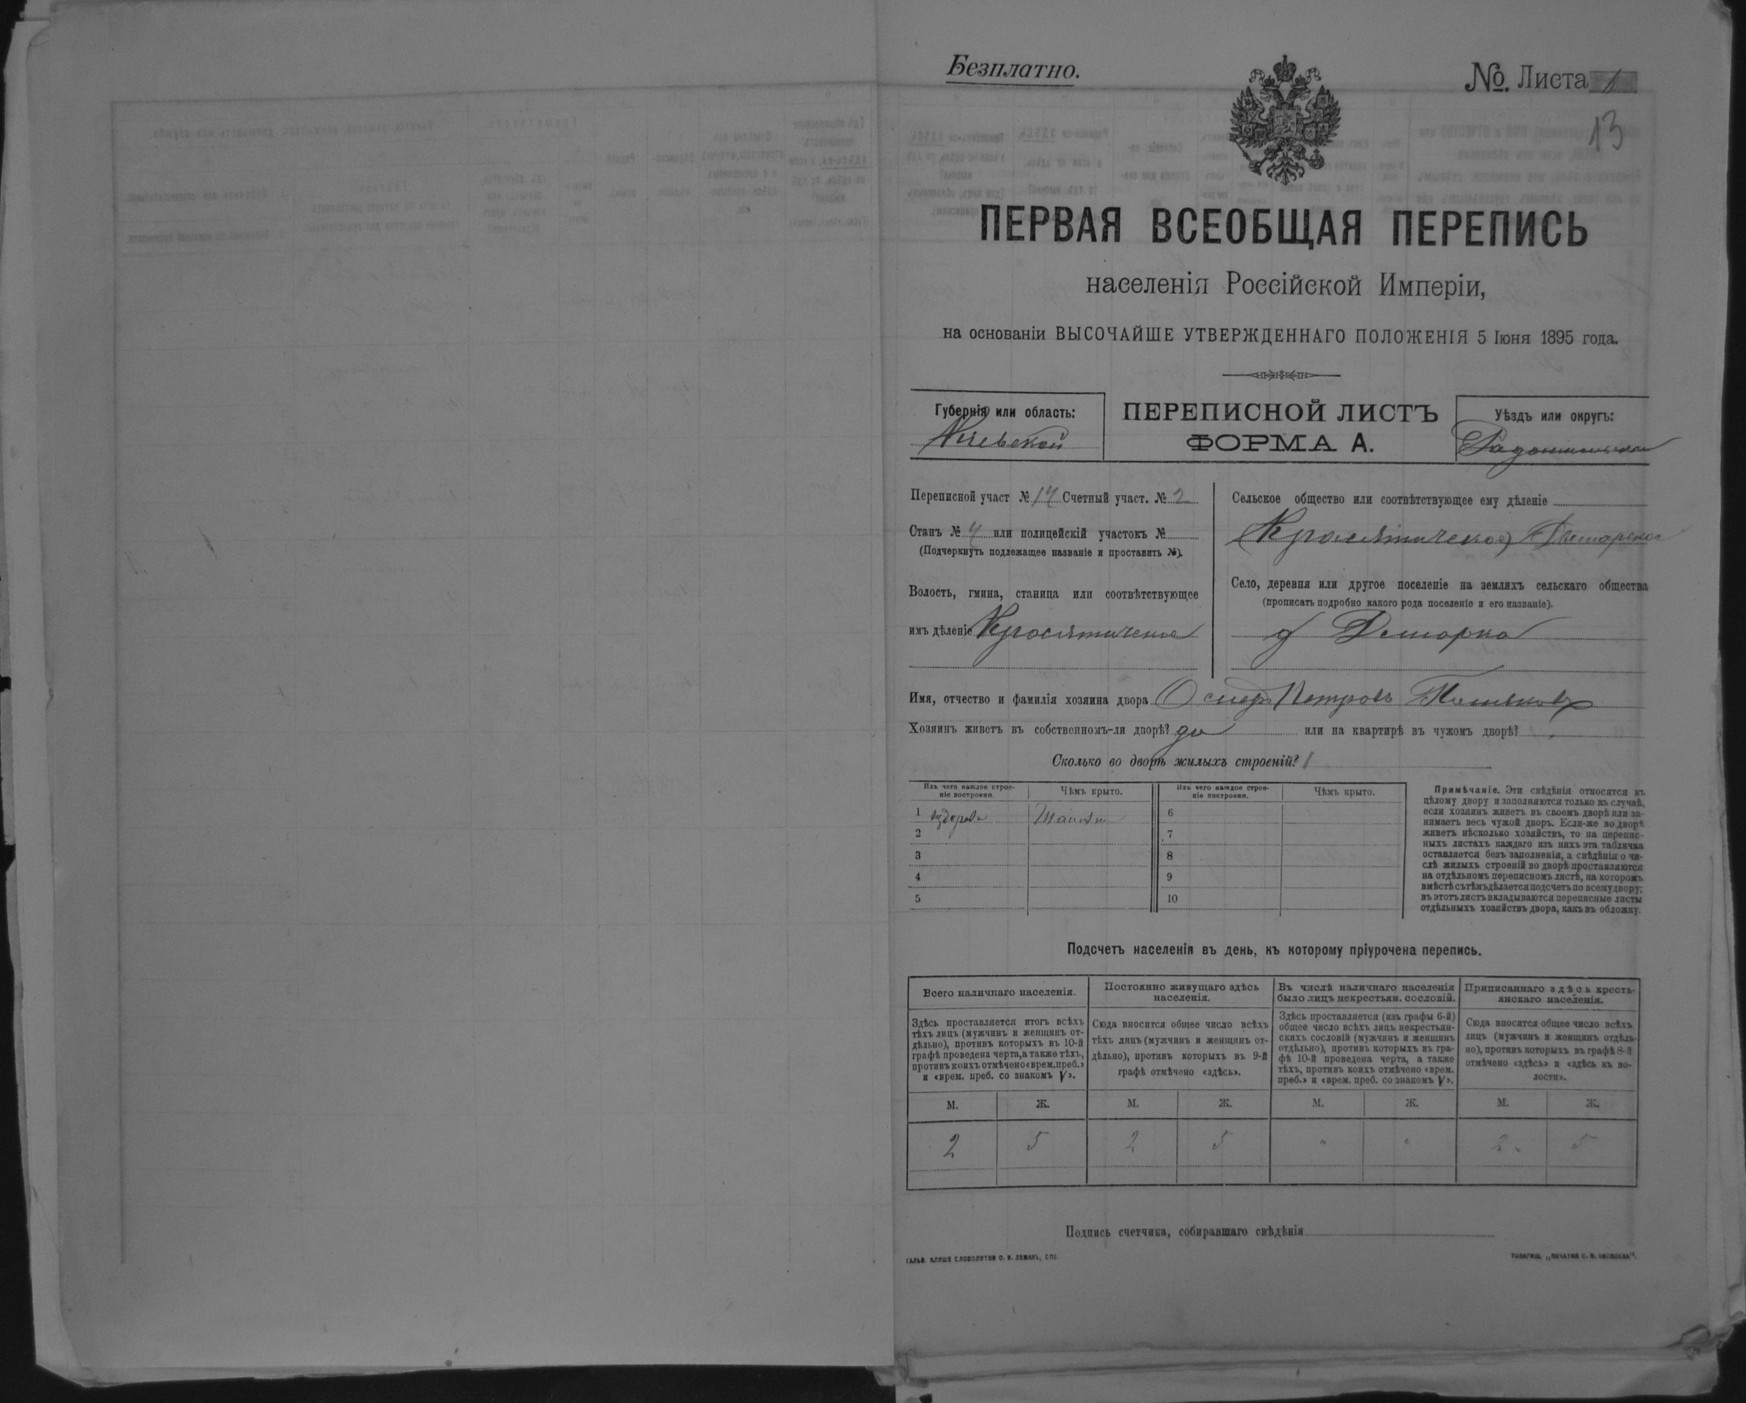 Безплатно.
№ Листа 1
13
ПЕРВАЯ ВСЕОБЩАЯ ПЕРЕПИСЬ
населенія Россійской Имперіи,
на основаніи ВЫСОЧАЙШЕ УТВЕРЖДЕННАГО ПОЛОЖЕНІЯ 5 Іюня 1895 года.
Губернія или область:
Кіевской
ПЕРЕПИСНОЙ ЛИСТЪ
ФОРМА А.
Уѣздъ или округъ:
Переписной участ № 14 Счетный участ. № 2
Станъ № 4 или полицейскій участокъ №
(Подчеркнуть подлежащее названіе и проставить №).
Волость, гмина, станица или соотвѣтствующее
имъ дѣленіе Красятическое
Сельское общество или соотвѣтствующее ему дѣленіе
Красятическое
Село, деревня или другое поселеніе на земляхъ сельскаго общества
(прописать подробно какого рода поселеніе и его названіе).
д
Имя, отчество и фамилія хозяина двора Петровъ
Хозяинъ живетъ въ собственномъ-ли дворѣ? да или на квартирѣ въ чужомъ дворѣ?
Сколько во дворѣ жилыхъ строеній? 1
Изъ чего каждое строеніе построено.
Чѣмъ крыто.
Изъ чего каждое строеніе построено.
Чѣмъ крыто.
1
6
2
7
3
8
4
9
5
10
Примѣчаніе. Эти свѣдѣнія относятся къ
цѣлому двору и заполняются только въ случаѣ,
если хозяинъ живетъ въ своемъ дворѣ или за-
нимаетъ весь чужой дворъ. Если-же во дворѣ
живетъ нѣсколько хозяйствъ, то на перепис-
ныхъ листахъ каждаго изъ нихъ эта табличка
оставляется безъ заполненія, а свѣдѣнія о чи-
слѣ жилыхъ строеній во дворѣ проставляются
на отдѣльномъ переписномъ листѣ, на которомъ
вмѣстѣ съ тѣмъ дѣлается подсчетъ по всему двору;
въ этотъ листъ вкладываются переписные листы
отдѣльныхъ хозяйствъ двора, какъ въ обложку.
Подсчетъ населенія въ день, къ которому пріурочена перепись.
Всего наличнаго населенія.
Здѣсь проставляется итогъ всѣхъ
тѣхъ лицъ (мужчинъ и женщинъ от-
дѣльно), противъ которыхъ въ 10-й
графѣ проведена черта, а также тѣхъ,
противъ коихъ отмѣчено «врем. преб.»
и «врем. преб. со знакомъ V».
Постоянно живущаго здѣсь
населенія.
Сюда вносится общее число всѣхъ
тѣхъ лицъ (мужчинъ и женщинъ от-
дѣльно), противъ которыхъ въ 9-й
графѣ отмѣчено «здѣсь».
Въ числѣ наличнаго населенія
было лицъ некрестьян. сословій.
Здѣсь проставляется (изъ графы 6-й)
общее число всѣхъ лицъ некрестьян-
скихъ сословій (мужчинъ и женщинъ
отдѣльно), противъ которыхъ въ гра-
фѣ 10-й проведена черта, а также
тѣхъ, противъ коихъ отмѣчено «врем.
преб.» и «врем. преб. со знакомъ V».
Приписаннаго здѣсь кресть-
янскаго населенія.
Сюда вносится общее число всѣхъ
лицъ (мужчинъ и женщинъ отдѣль-
но), противъ которыхъ въ графѣ 8-й
отмѣчено «здѣсь» и «здѣсь въ во-
лости».
М. Ж. М. Ж. М. Ж. М. Ж.
2 5 2 5 " " 2 5
Подпись счетчика, собиравшаго свѣдѣнія